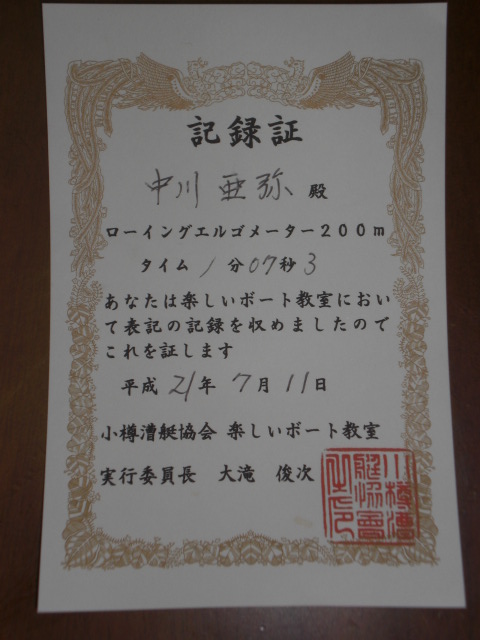 記録証
中川 亜弥 殿
ローイングエルゴメーター200m
タイム 1分07秒3
あなたは楽しいボート教室におい
て表記の記録を収めましたので
これを証します
平成 21年 7月 11日
小樽漕艇協会 楽しいボート教室
実行委員長 大滝 俊次
小樽漕
艇協會